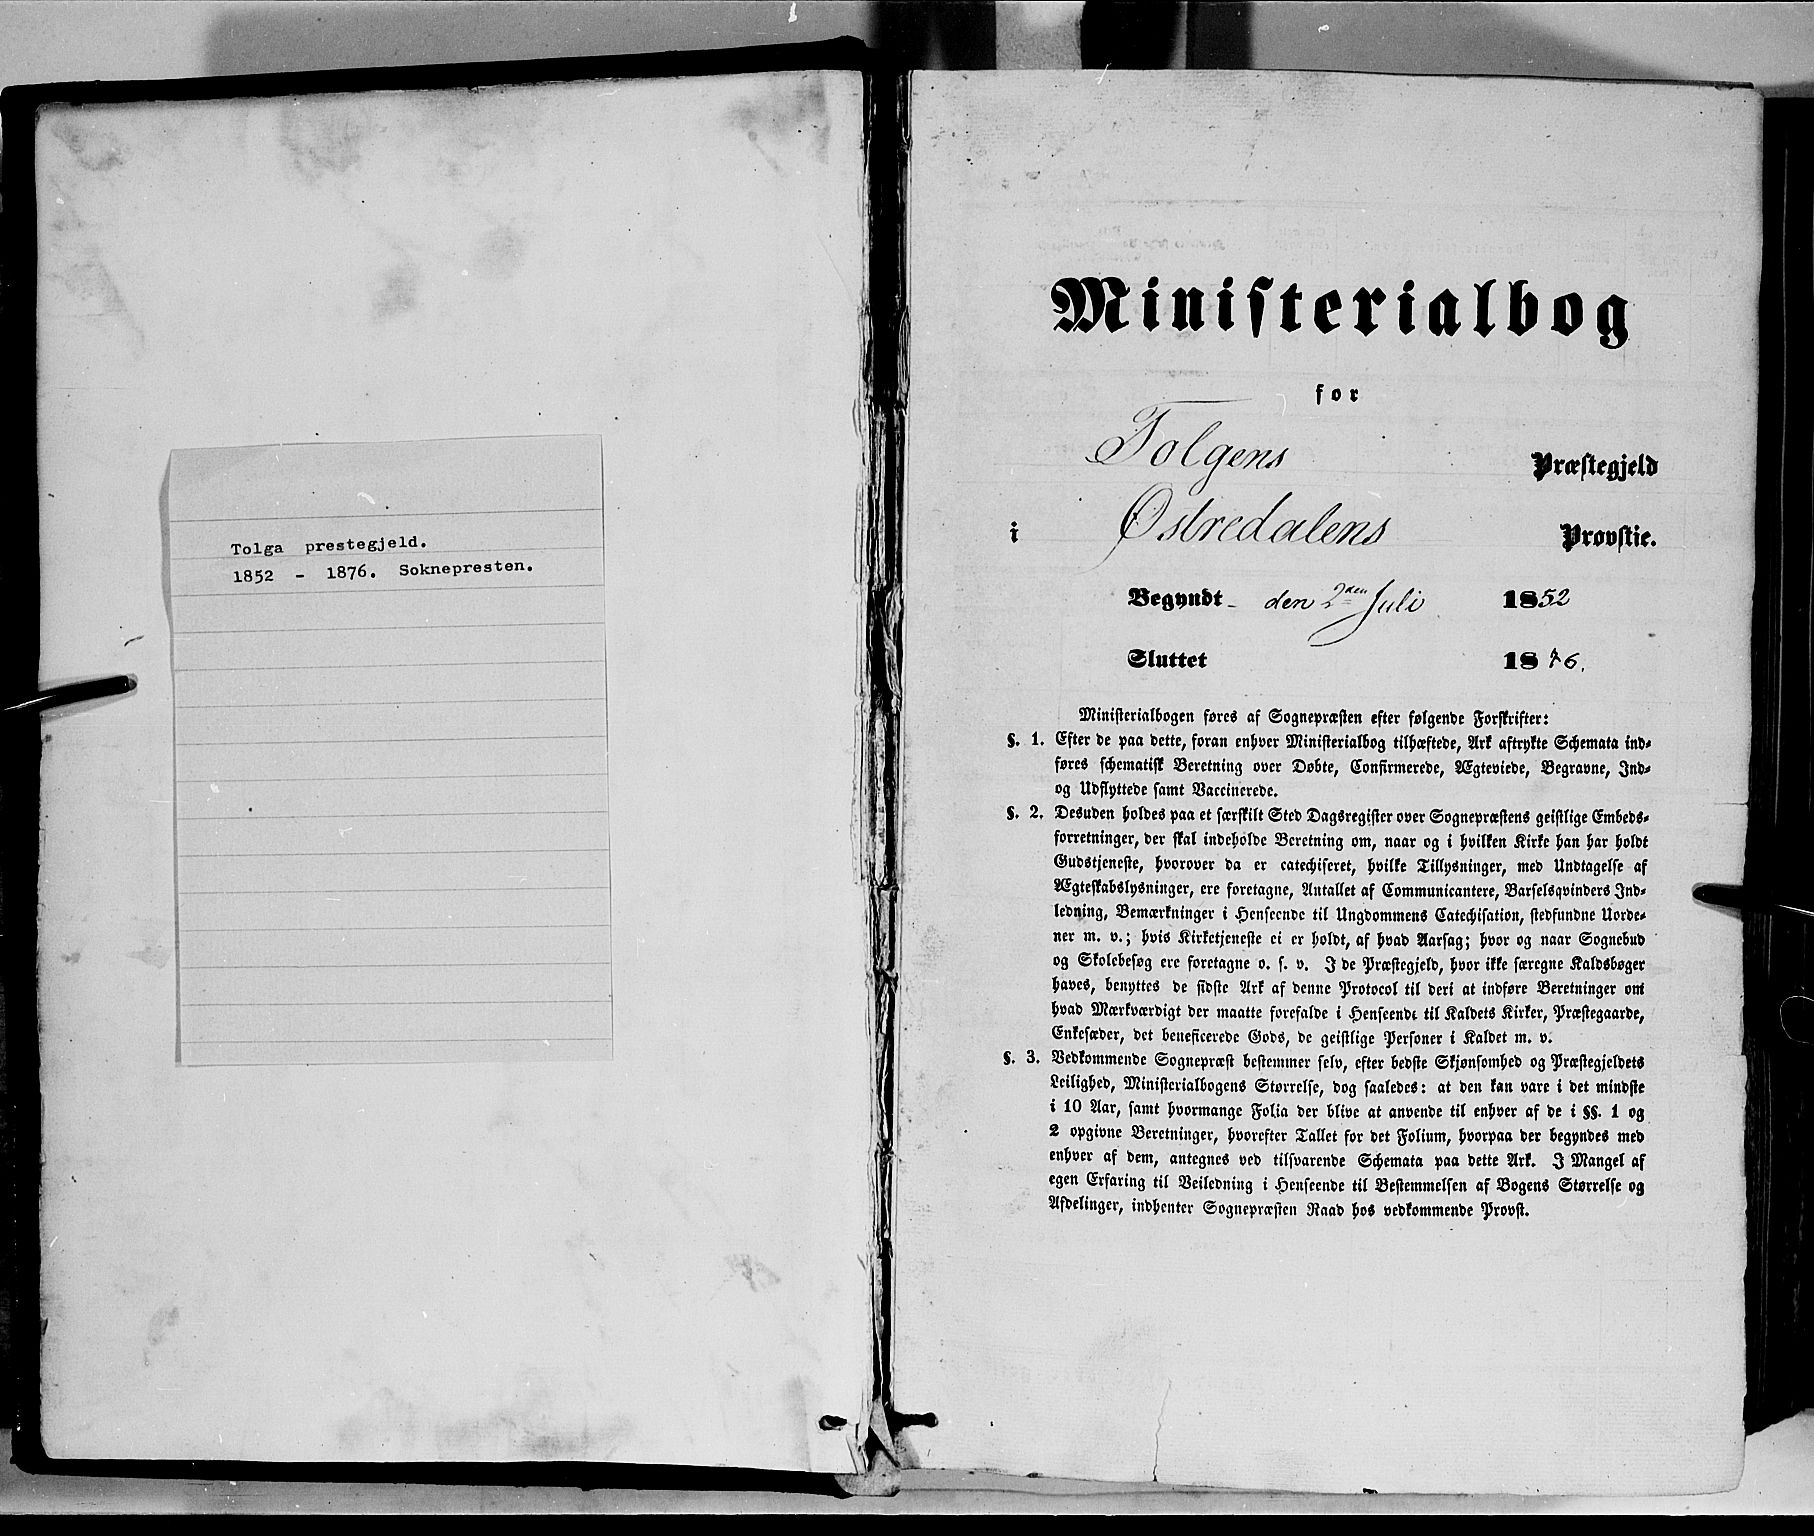 Tolga prestegjeld.
1852 - 1876. Soknepresten.
Ministerialbog
for
Tolgens Præstegjeld
i Østredalens Provstie.
Begyndt - den 2den Juli 1852
Sluttet 1876.
Ministerialbogen føres af Sognepræsten efter følgende Forskrifter:
§. 1. Efter de paa dette, foran enhver Ministerialbog tilhæftede, Ark aftrykte Schemata ind-
føres schematisk Beretning over Døbte, Confirmerede, Ægteviede, Begravne, Ind-
og Udflyttede samt Vaccinerede.
§. 2. Desuden holdes paa et særskilt Sted Dagsregister over Sognepræstens geistlige Embeds-
forretninger, der skal indeholde Beretning om, naar og i hvilken Kirke han har holdt
Gudstjeneste, hvorover da er catechiseret, hvilke Tillysninger, med Undtagelse af
Ægteskabslysninger, ere foretagne, Antallet af Communicantere, Barselsqvinders Ind-
ledning, Bemærkninger i Henseende til Ungdommens Catechisation, stedfundne Uorde-
ner m. v.; hvis Kirketjeneste ei er holdt, af hvad Aarsag; hvor og naar Sognebud
og Skolebesøg ere foretagne o. s. v. I de Præstegjeld, hvor ikke særegne Kaldsbøger
haves, benyttes de sidste Ark af denne Protocol til deri at indføre Beretninger om
hvad Mærkværdigt der maatte forefalde i Henseende til Kaldets Kirker, Præstegaarde,
Enkesæder, det beneficerede Gods, de geistlige Personer i Kaldet m. v.
§. 3. Vedkommende Sognepræst bestemmer selv, efter bedste Skjønsomhed og Præstegjeldets
Leilighed, Ministerialbogens Størrelse, dog saaledes: at den kan vare i det mindste
i 10 Aar, samt hvormange Folia der blive at anvende til enhver af de i §§. 1 og
2 opgivne Beretninger, hvorefter Tallet for det Folium, hvorpaa der begyndes med
enhver af dem, antegnes ved tilsvarende Schemata paa dette Ark. I Mangel af
egen Erfaring til Veiledning i Henseende til Bestemmelsen af Bogens Størrelse og
Afdelinger, indhenter Sognepræsten Raad hos vedkommende Provst.